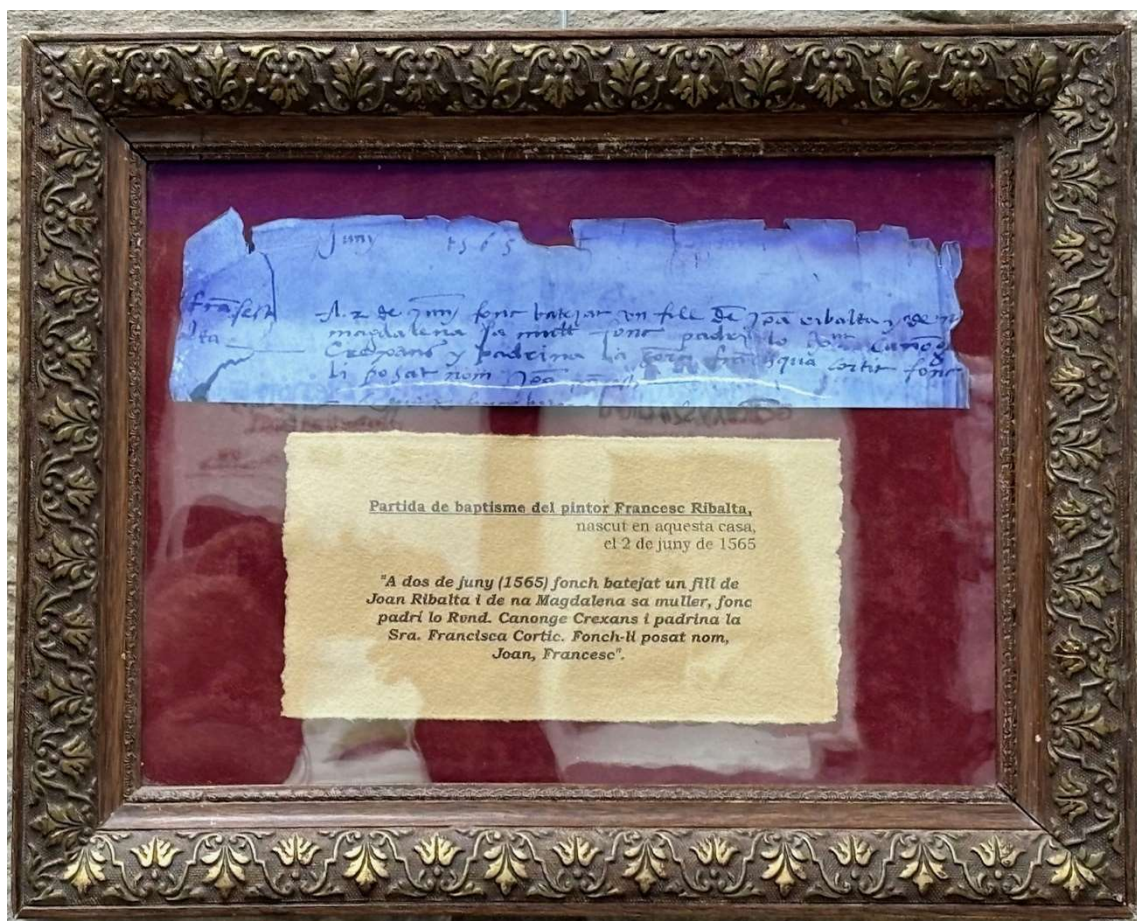 Juny 1565
A 2 de Juny fonc batejat un fill de Joā ribalta y de
magdaleña sa mullr fonc padri lo
Crexans y padrina la cortit fonc
li posat nom Joā
Partida de baptisme del pintor Francesc Ribalta,
nascut en aquesta casa,
el 2 de juny de 1565
"A dos de juny (1565) fonch batejat un fill de
Joan Ribalta i de na Magdalena sa muller, fonc
padrí lo Rvnd. Canonge Crexans i padrina la
Sra. Francisca Cortic. Fonch-li posat nom,
Joan, Francesc".